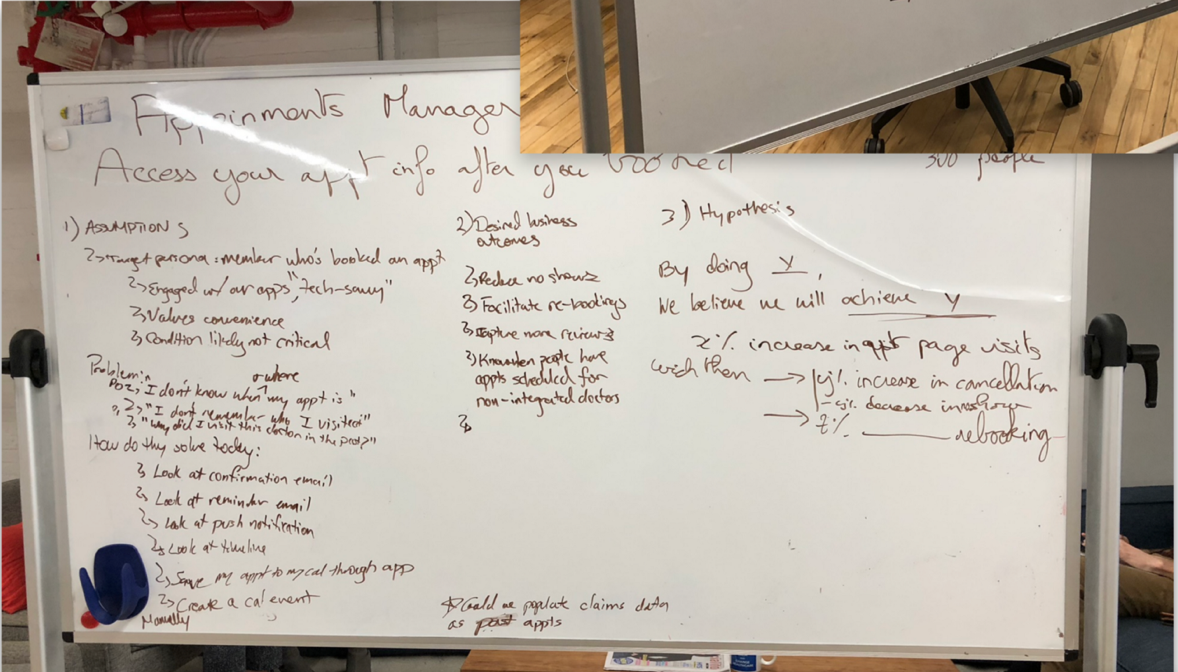 Appoinments Manager
Access your appt info after you booked
300 people
1) ASSUMPTIONS
Target persona : member who's booked an appt
Engaged w/ our apps, "tech-savvy"
Values convenience
Condition likely not critical
Problem:
or where
"I don't know when my appt is"
"I don't remember who I visited"
"Why did I visit this doctor in the past?"
How do they solve today:
Look at confirmation email
Look at reminder email
Look at push notification
Look at timeline
Save my appt to my cal through app
Create a cal event
Manually
2) Desired business
outcomes
Reduce no shows
Facilitate re-bookings
Capture more reviews
Know when people have
appts scheduled for
non-integrated doctors
Could we populate claims data
as past appts
3) Hypothesis
By doing Y,
We believe we will achieve Y
z% increase in appt page visits
which then → y% increase in cancellation
→ -y% decrease in
z% rebooking